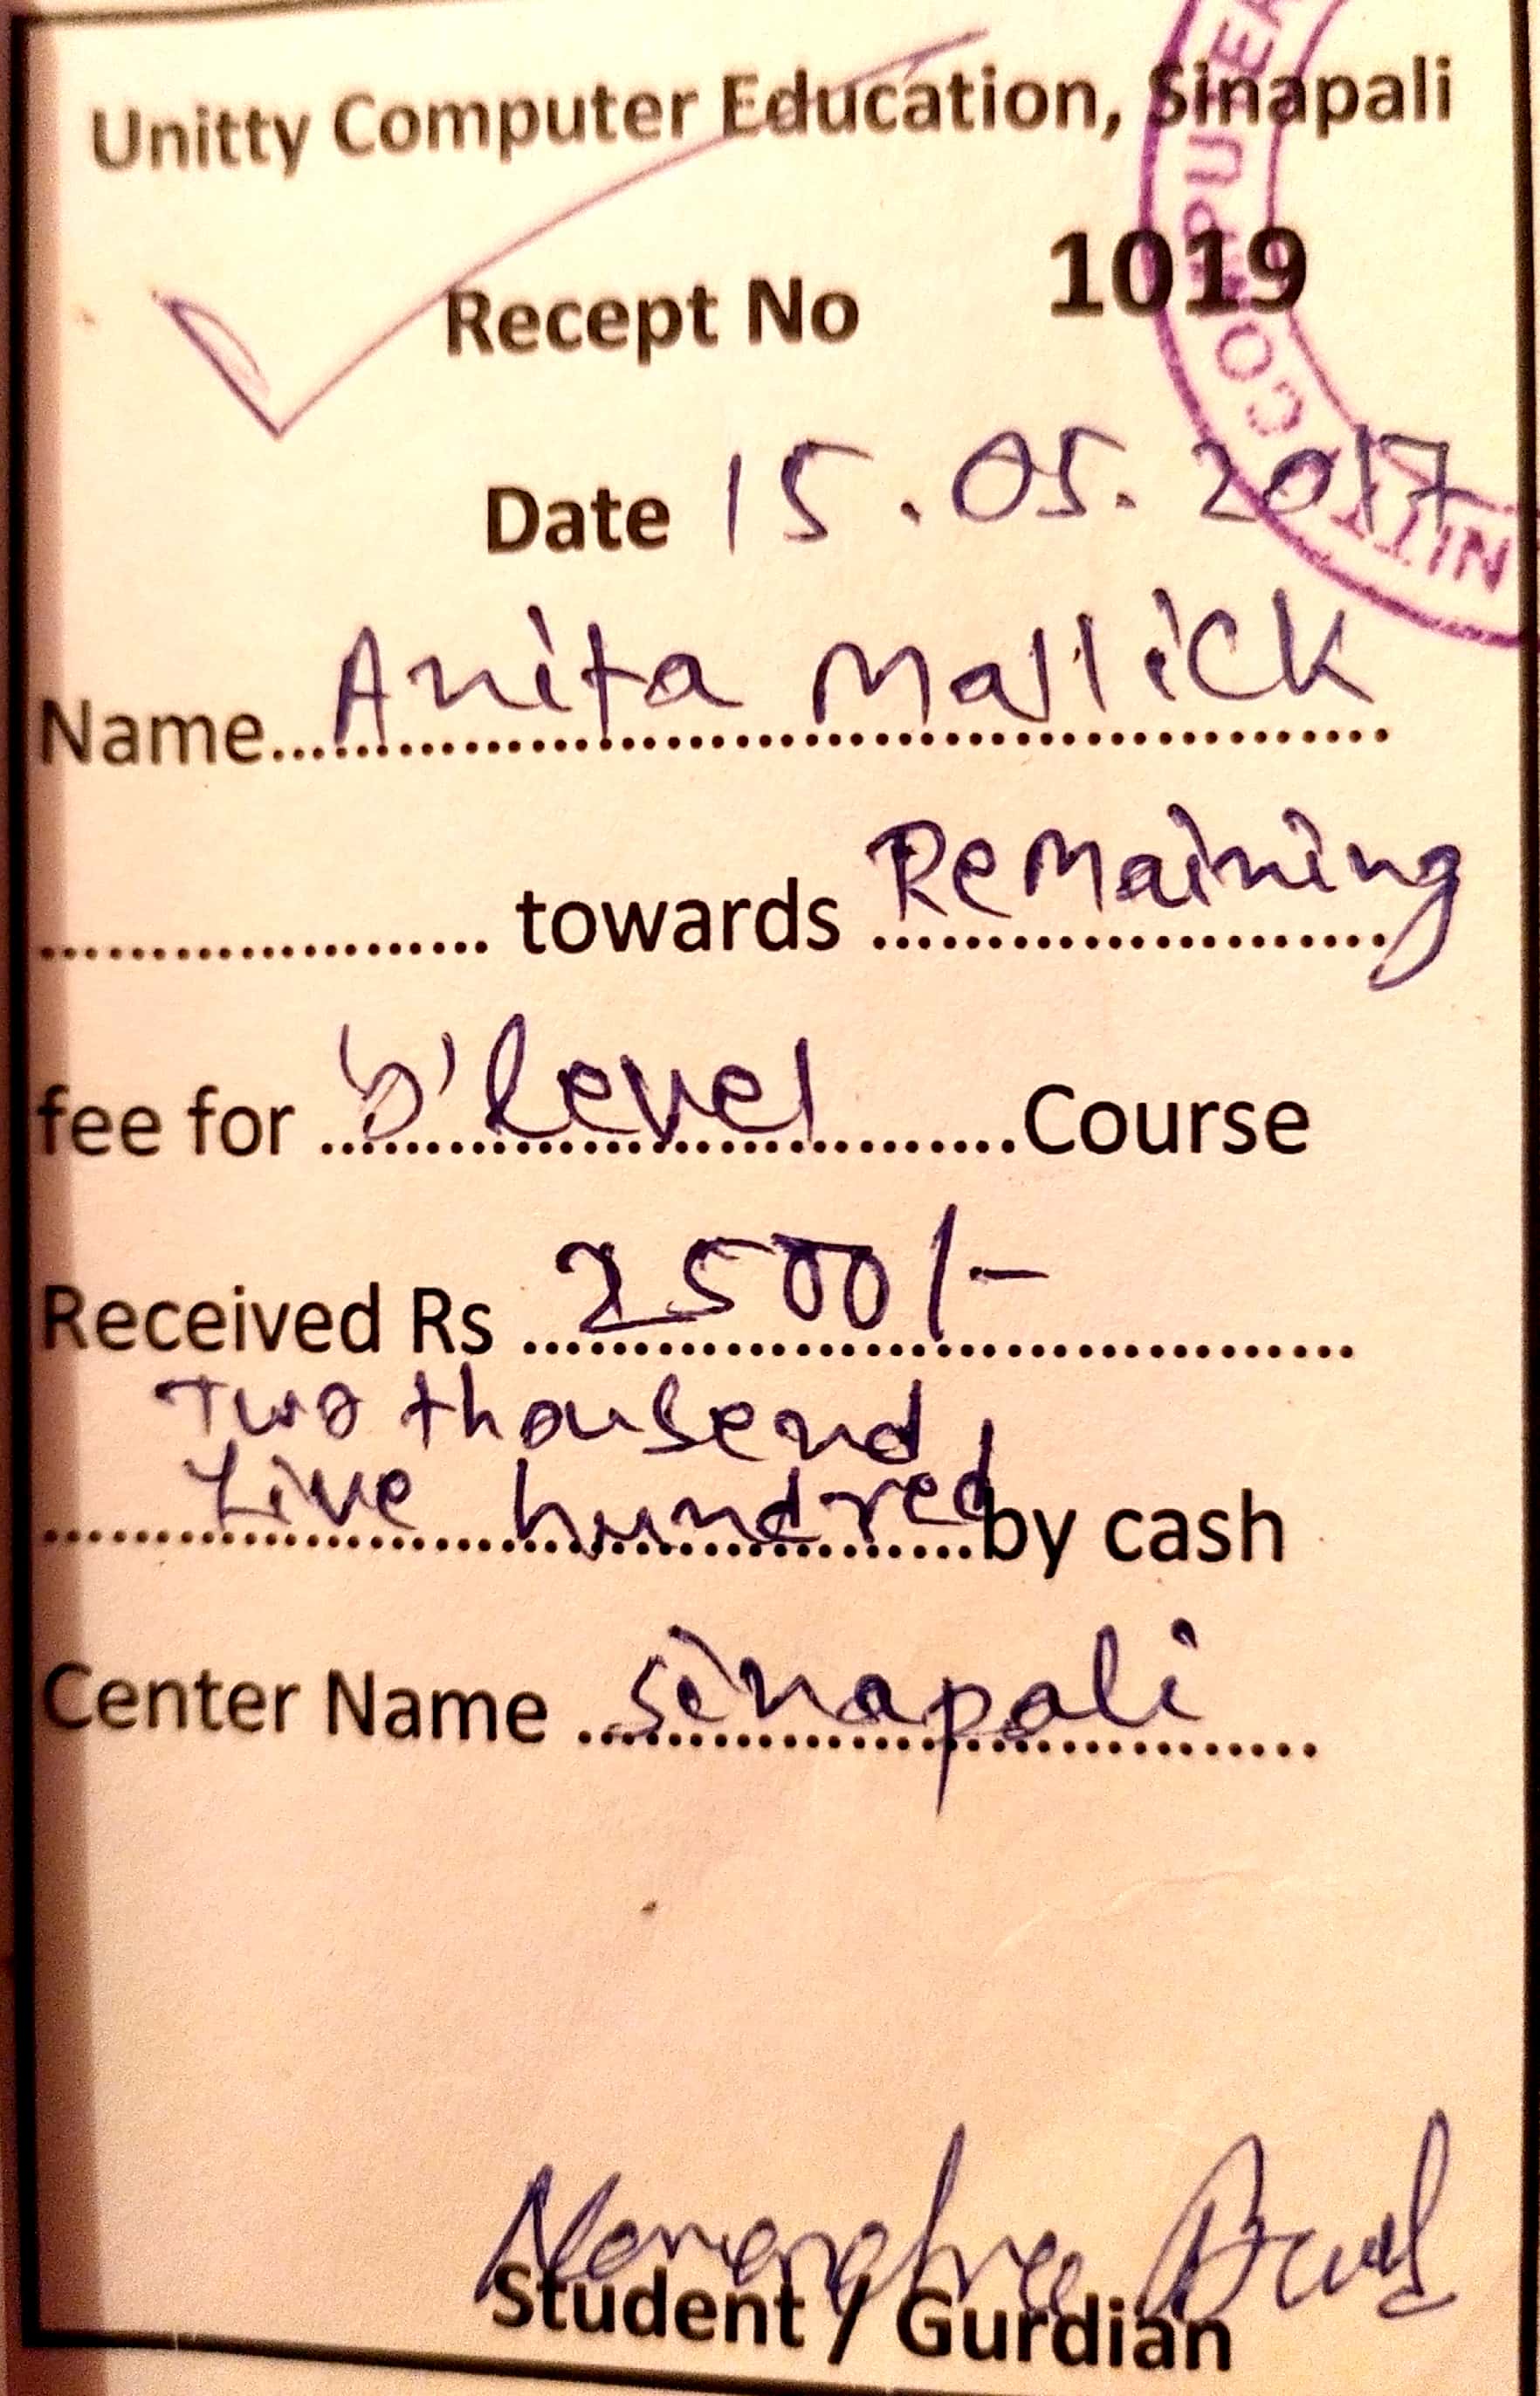 Unitty Computer Education, Sinapali
Recept No 1019
Date 15.05.2017
Name...Anita Mallick
towards Remaining
fee for b'level Course
Received Rs 2500/-
Two thousend
five hundred by cash
Center Name Sinapali
Student / Gurdian